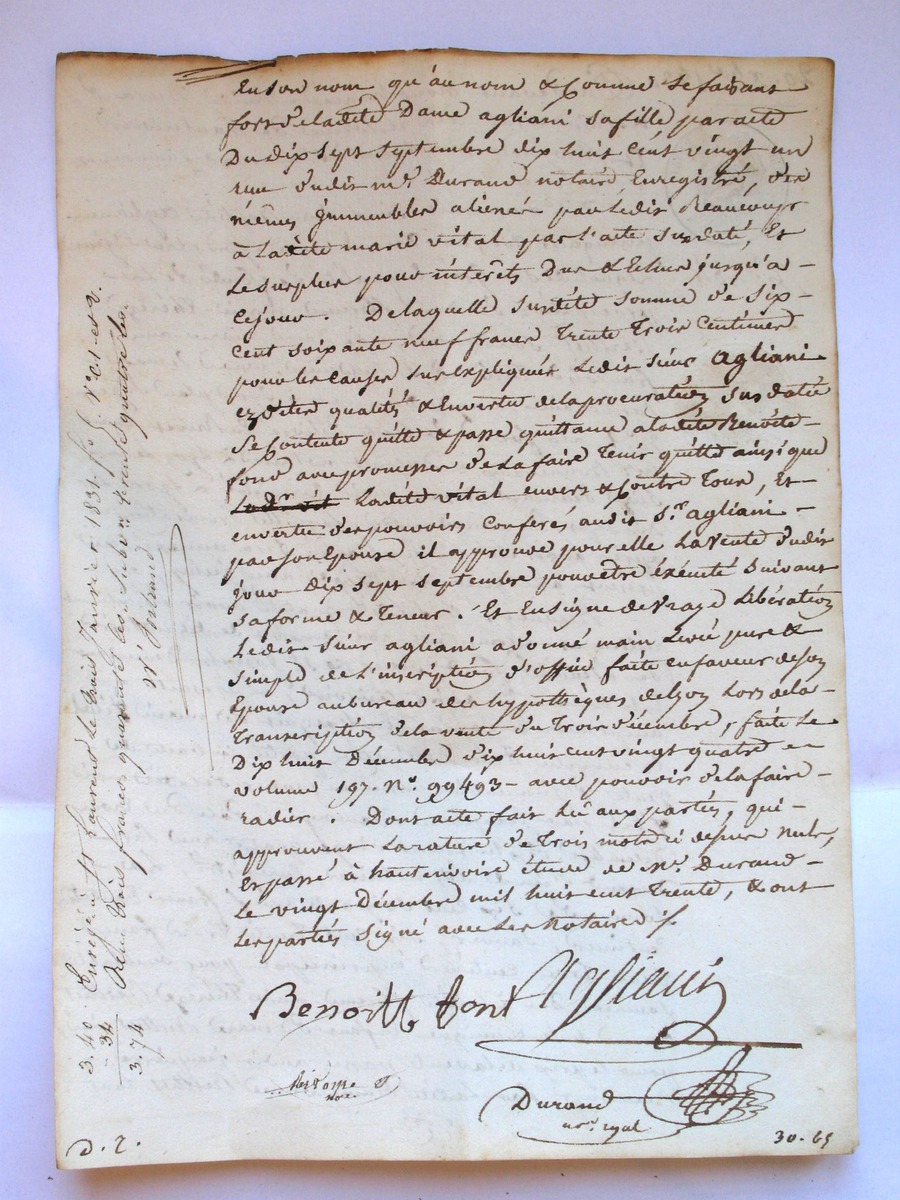 en son nom qu'au nom & comme se faisant
fort de ladite Dame agliani sa fille par acte
Du dix sept septembre dix huit cent vingt un
reçu dudit Me. Durand notaire, Enregistré, des
mêmes immeubles alienés par ledit Beaucoup
à ladite marie vital par l'acte susdaté, Et
le surplus pour intérêts Dus & Echus jusqu'a -
ce jour. De laquelle susdite somme de six -
cent soixante neuf francs trente trois centimes
pour les causes sus expliquées ledit sieur agliani
ezdites qualités & en vertu de la procuration sus datée
se contente quitte & passe quittance a ladite Benoite -
font avec promesse de la faire tenir quitte ainsi que
ladite vital envers & contre tous, Et -
en vertu des pouvoirs conferés audit Sr. agliani -
par son Epouse il approuve pour elle la vente dudit
jour dix sept septembre pour être éxécuté suivant
sa forme & teneur. Et En signe de vraye libération
ledit sieur agliani a donné main levée pure &
simple de l'inscription d'office faite en faveur de son
Epouse au bureau des hypothèques de Lyon lors de la -
transcription de la vente du trois décembre, faite le
Dix huit Décembre dix huit cent vingt quatre -
volume 197. No. 99493 - avec pouvoir de la faire -
radier. Dont acte fait lû aux parties, qui -
approuvent la rature de trois mots ci dessus nuls,
Et passé à hauterivoire étude de Me. Durand -
le vingt Décembre mil huit cent trente, & ont
les parties signé avec les Notaires ./.
Benoitte font Agliani
Durand
nore. royal
30.65
D. 2.
Enrégistré à St Laurent le trois Janvier 1831. fo. 5. Vo. C1. et 2.
Reçu trois francs quarante cts, subvon. trente quatre cts.
3.40
34
3.74